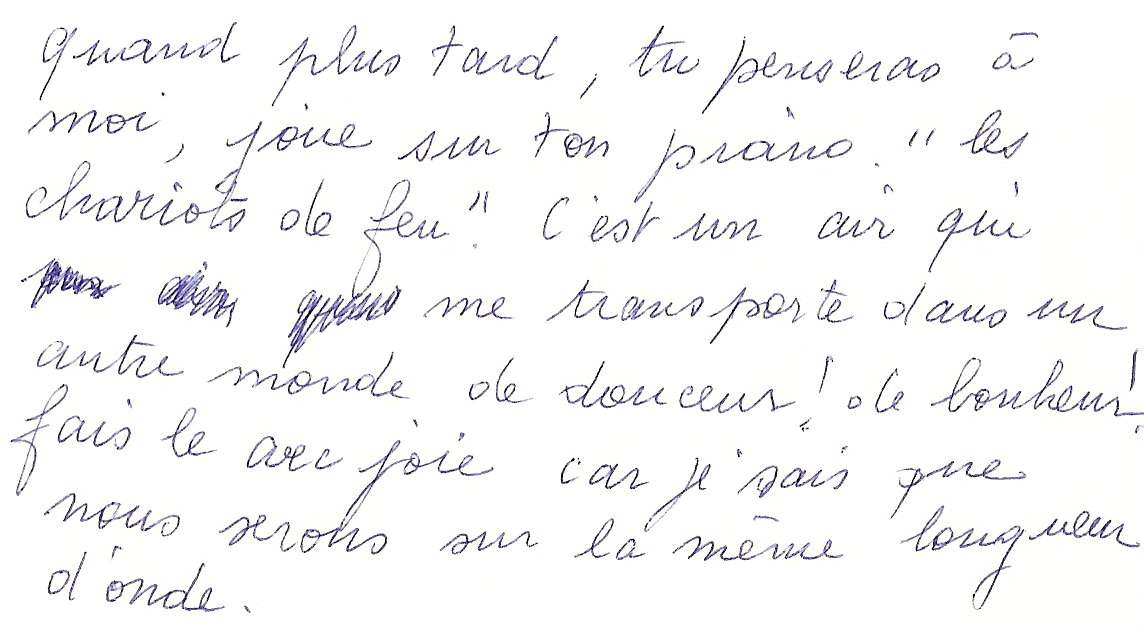 quand plus tard, tu penseras à
moi, joue sur ton piano. "les
chariots de feu". C'est un air qui
me transporte dans un
autre monde de douceur! de bonheur!
fais le avec joie car je sais que
nous serons sur la même longueur
d'onde.